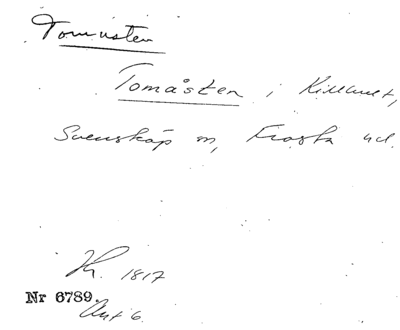 Tomasten
Tomåsten i Killhult,
Svensköp sn, Frosta hd.
K. 1817
Nr 6789.
Akt 6.